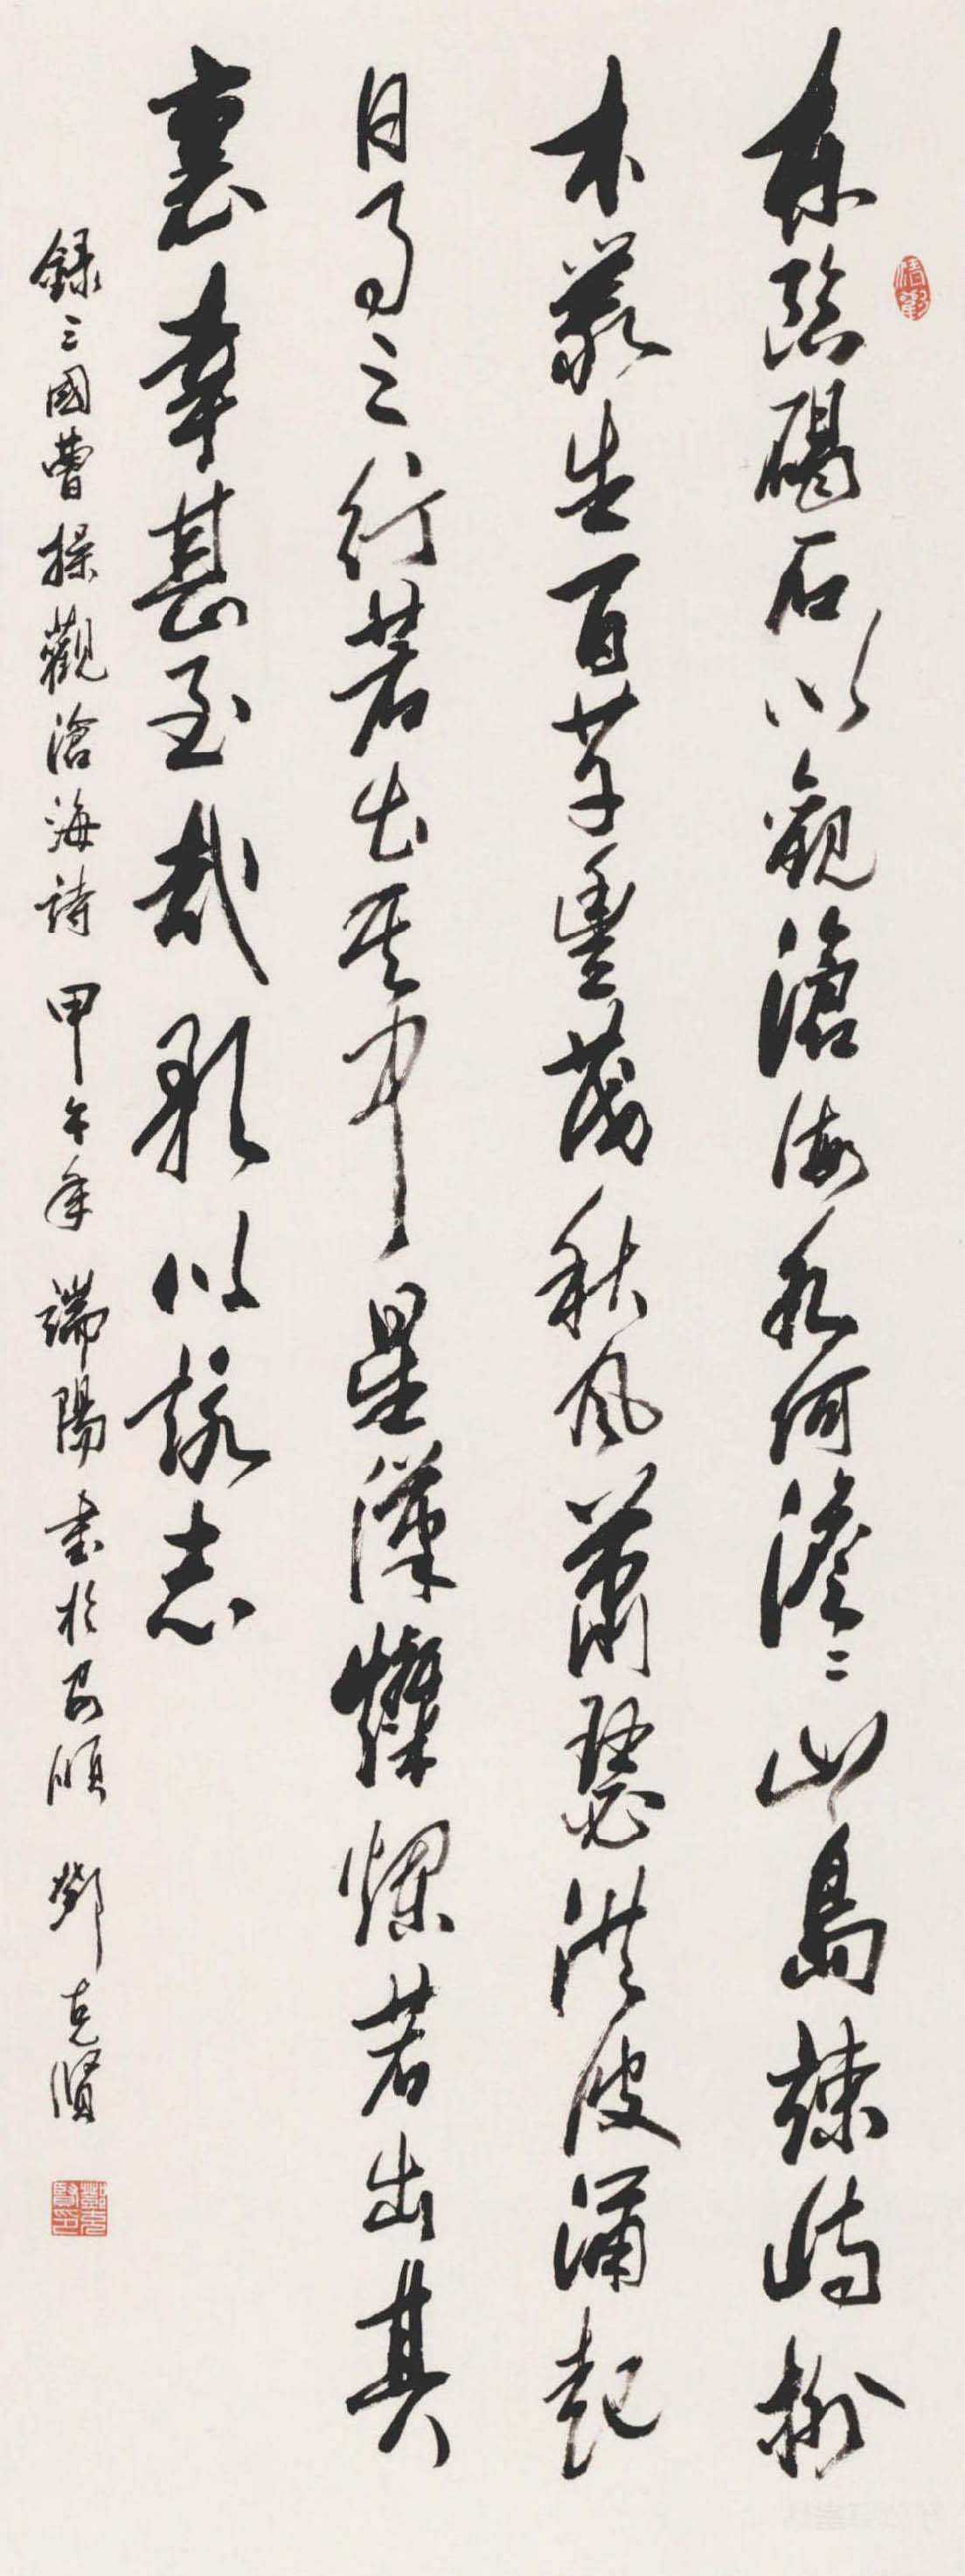 東臨碣石以觀滄海水何澹〻山島竦峙樹
木叢生百草豐茂秋風蕭瑟洪波涌起
日月之行若出其中星漢燦爛若出其
裏幸甚至哉歌以詠志
録三國曹操觀滄海詩 甲午年 端陽書於安順 鄧克賢
鄧克賢印